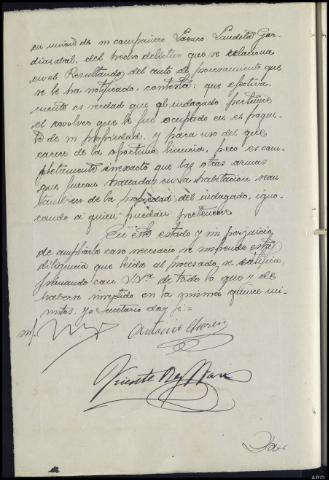 en unión de su compañero Lázaro Landeta Gor-
diazabal, del hecho delictivo que se relaciona
en el Resultando del auto de procesamiento que
se le ha notificado, contesta: que efectiva-
mente es verdad que al indagado pertenece
el revólver que le fué ocupado
de su propiedad, y para uso del que
carece de la oportuna licencia, pero es com-
pletamente inexacto que las otras armas
que fueron halladas en la habitación sean
también de la propiedad del indagado, igno-
rando a quien puedan pertenecer.
En este estado y sin perjuicio
de ampliarla caso necesario se suspende esta
diligencia que leida al procesado, se ratifica,
firmando con S.Sª de todo lo que y de
haberse invertido en la misma quince mi-
nutos, yo Secretario doy fé.=
Antonio
Vicente Rey